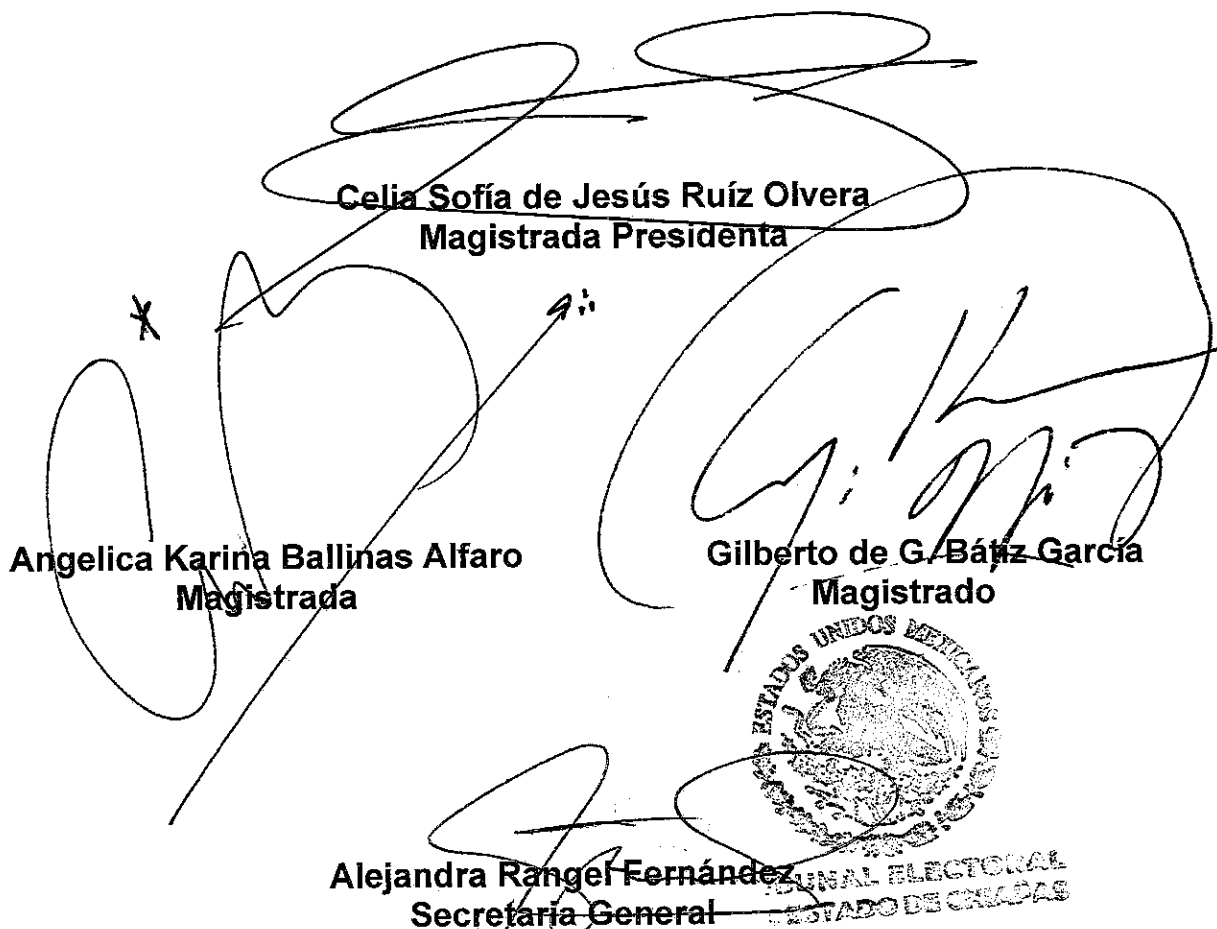 Celia Sofía de Jesús Ruíz Olvera
Magistrada Presidenta
Angelica Karina Ballinas Alfaro
Magistrada
Gilberto de G. Bátiz García
Magistrado
ESTADOS UNIDOS MEXICANOS
Alejandra Rangel Fernández
Secretaria General
ELECTORAL
ESTADO DE CHIAPAS